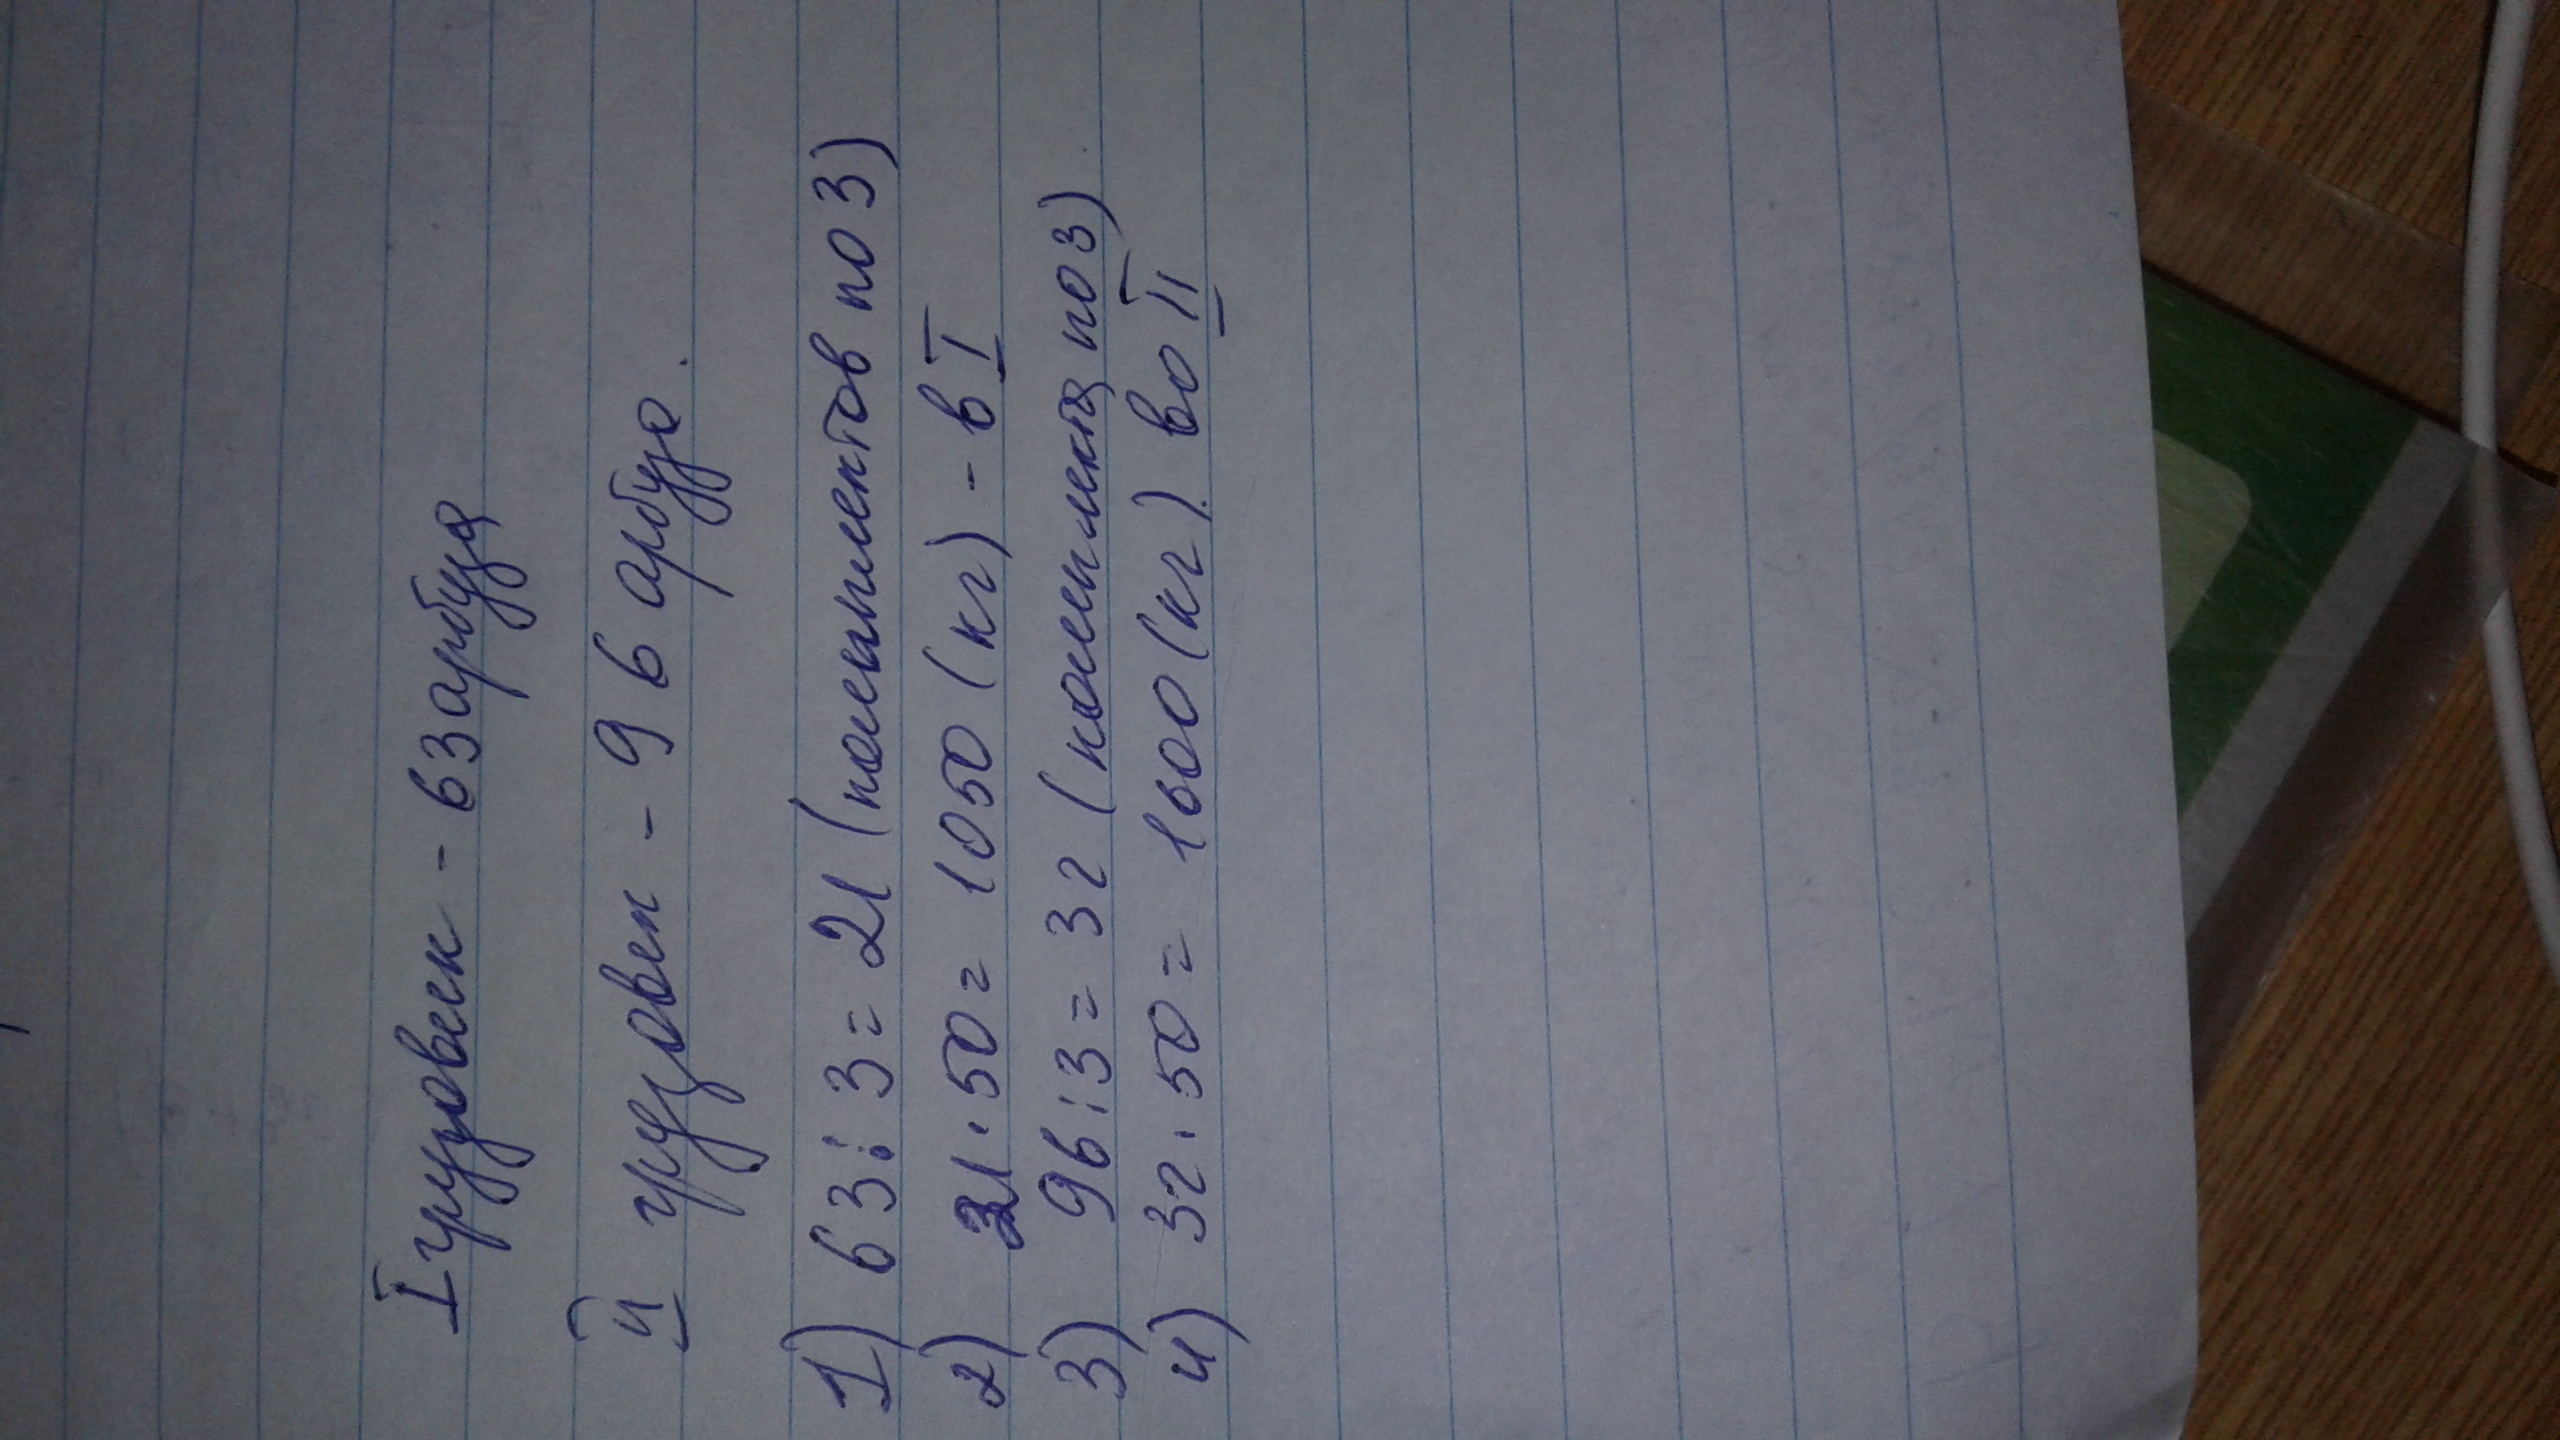 I грузовик - 63 арбуза
II грузовик - 96 арбуза.
1) 63 : 3 = 21 (комплектов по 3)
2) 21 · 50 = 1050 (кг) - в I
3) 96 : 3 = 32 (комплекта по 3)
4) 32 · 50 = 1600 (кг) во II